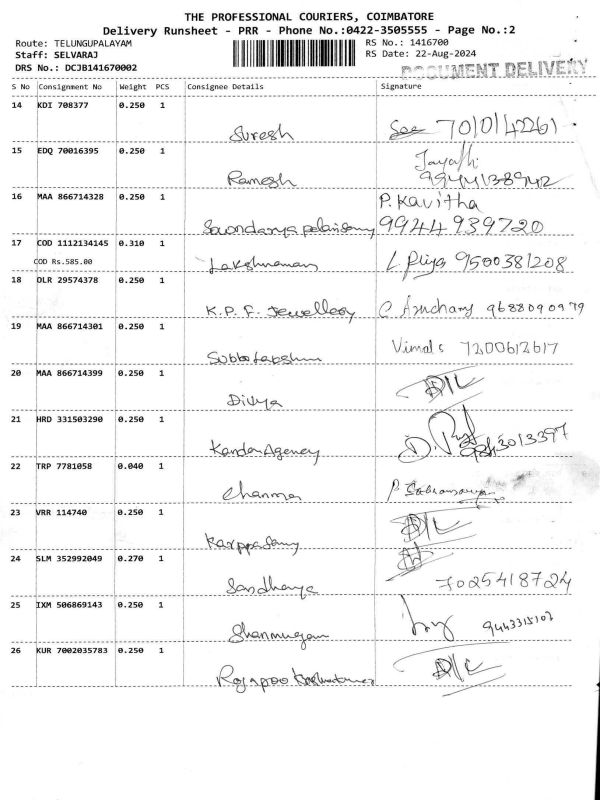 THE PROFESSIONAL COURIERS, COIMBATORE
Delivery Runsheet - PRR - Phone No.:0422-3505555 - Page No.:2
Route: TELUNGUPALAYAM
Staff: SELVARAJ
DRS No.: DCJB141670002
RS No.: 1416700
RS Date: 22-Aug-2024
DOCUMENT DELIVERY
S No Consignment No Weight PCS Consignee Details Signature
14 KDI 708377 0.250 1
Suresh 7010142261
15 EDQ 70016395 0.250 1
Jayathi
Ramesh 9944138942
16 MAA 866714328 0.250 1
P. Kavitha
Soundarya palanisamy 9944939720
17 COD 1112134145 0.310 1
COD Rs.585.00
Lakshmanan L. Priya 9500381208
18 OLR 29574378 0.250 1
K.P.F. Jewellery 9688090979
19 MAA 866714301 0.250 1
Vimal s 7200612617
Subbolakshmi
20 MAA 866714399 0.250 1
D/L
Divya
21 HRD 331503290 0.250 1
Kandan Agency
22 TRP 7781058 0.040 1
Channa
23 VRR 114740 0.250 1
D/L
Karppasamy
24 SLM 352992049 0.270 1
Sandhanya 7025418724
25 IXM 506869143 0.250 1
Shanmugam 9443315103
26 KUR 7002035783 0.250 1
D/L